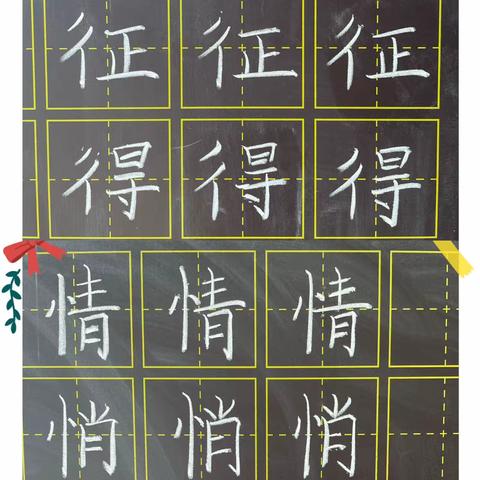 征征征
得得得
情情情
悄悄悄